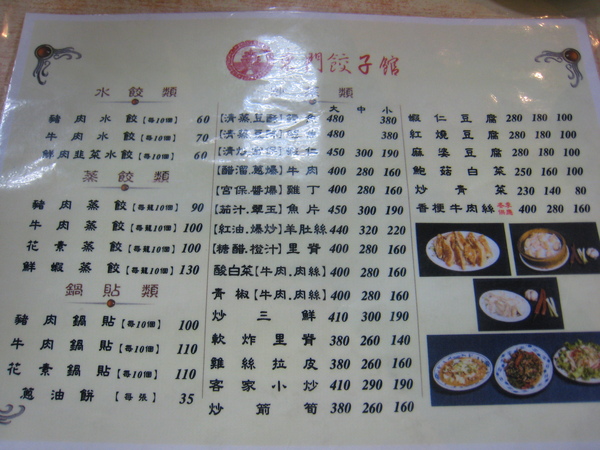 門餃子館
水餃類
豬肉水餃【每10個】 60
牛肉水餃【每10個】 70
鮮肉韭菜水餃【每10個】 60
蒸餃類
豬肉蒸餃【每籠10個】 90
牛肉蒸餃【每籠10個】 100
花素蒸餃【每籠10個】 100
鮮蝦蒸餃【每籠10個】 130
鍋貼類
豬肉鍋貼【每10個】 100
牛肉鍋貼【每10個】 110
花素鍋貼【每10個】 110
蔥油餅【每張】 35
類
大 中 小
【清蒸豆酥】 480 380
【清蒸豆酥】 480 380
【清炒】蝦仁 450 300 190
【醋溜.蔥爆】牛肉 400 280 160
【宮保.醬爆】雞丁 400 280 160
【茄汁.翠玉】魚片 450 300 190
【紅油.爆炒】羊肚絲 440 320 220
【糖醋.橙汁】里脊 400 280 160
酸白菜【牛肉.肉絲】 400 280 160
青椒【牛肉.肉絲】 400 280 160
炒三鮮 410 300 190
軟炸里脊 380 260 140
雞絲拉皮 380 260 160
客家小炒 410 290 190
炒箭筍 380 260 160
蝦仁豆腐 280 180 100
紅燒豆腐 280 180 100
麻婆豆腐 280 180 100
鮑菇白菜 250 160 100
炒青菜 230 140 80
香梗牛肉絲 400 280 160